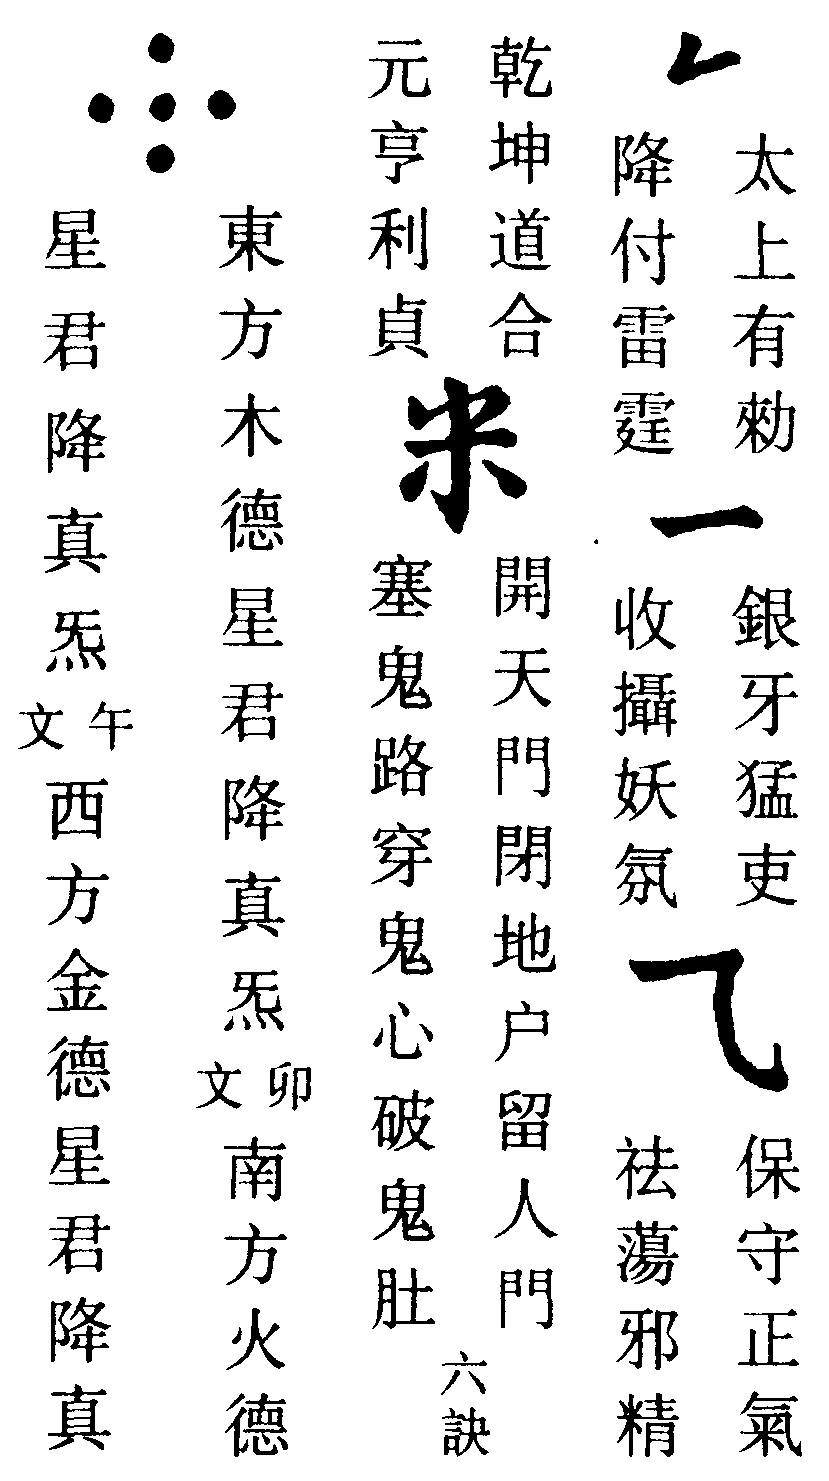 太上有勑
降付雷霆
銀牙猛吏
收攝妖氛
保守正氣
祛蕩邪精
乾坤道合
元亨利貞
開天門閉地户留人門
塞鬼路穿鬼心破鬼肚
六訣
東方木德星君降真炁卯文南方火德
星君降真炁午文西方金德星君降真